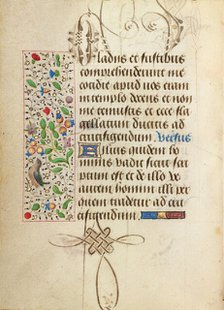 Gladiis et fustibus
comprehendere me
cotidie apud vos eram
in templo docens et non
me tenuistis et ecce fla
gellatum ducitis ad
crucifigendum Versus
Filius quidem ho
minis vadit sicut scri
ptum est de illo ve
autem homini illi per
quem tradetur ad cru
cifigendum